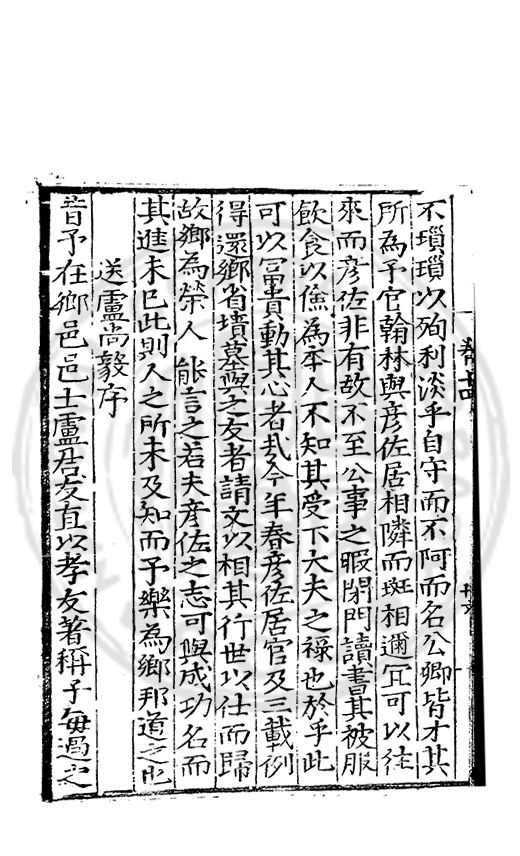 不瑣瑣以殉利淡乎自守而不阿而名公卿皆才其
所為予官翰林與彥佐居相隣而班相邇冝可以往
來而彥佐非有故不至公事之暇閉門讀書其被服
飲食以儉為本人不知其受下大夫之祿也於乎此
可以冨貴動其心者㢤今年春彥佐居官及三載例
得還鄉省墳墓與之友者請文以相其行世以仕而歸
故鄉為榮人能言之若夫彥佐之志可與成功名而
其進未已此則人之所未及知而予樂為鄉邦道之也
送盧尚毅序
昔予在鄉邑邑士盧居友直以孝友著稱予每過之